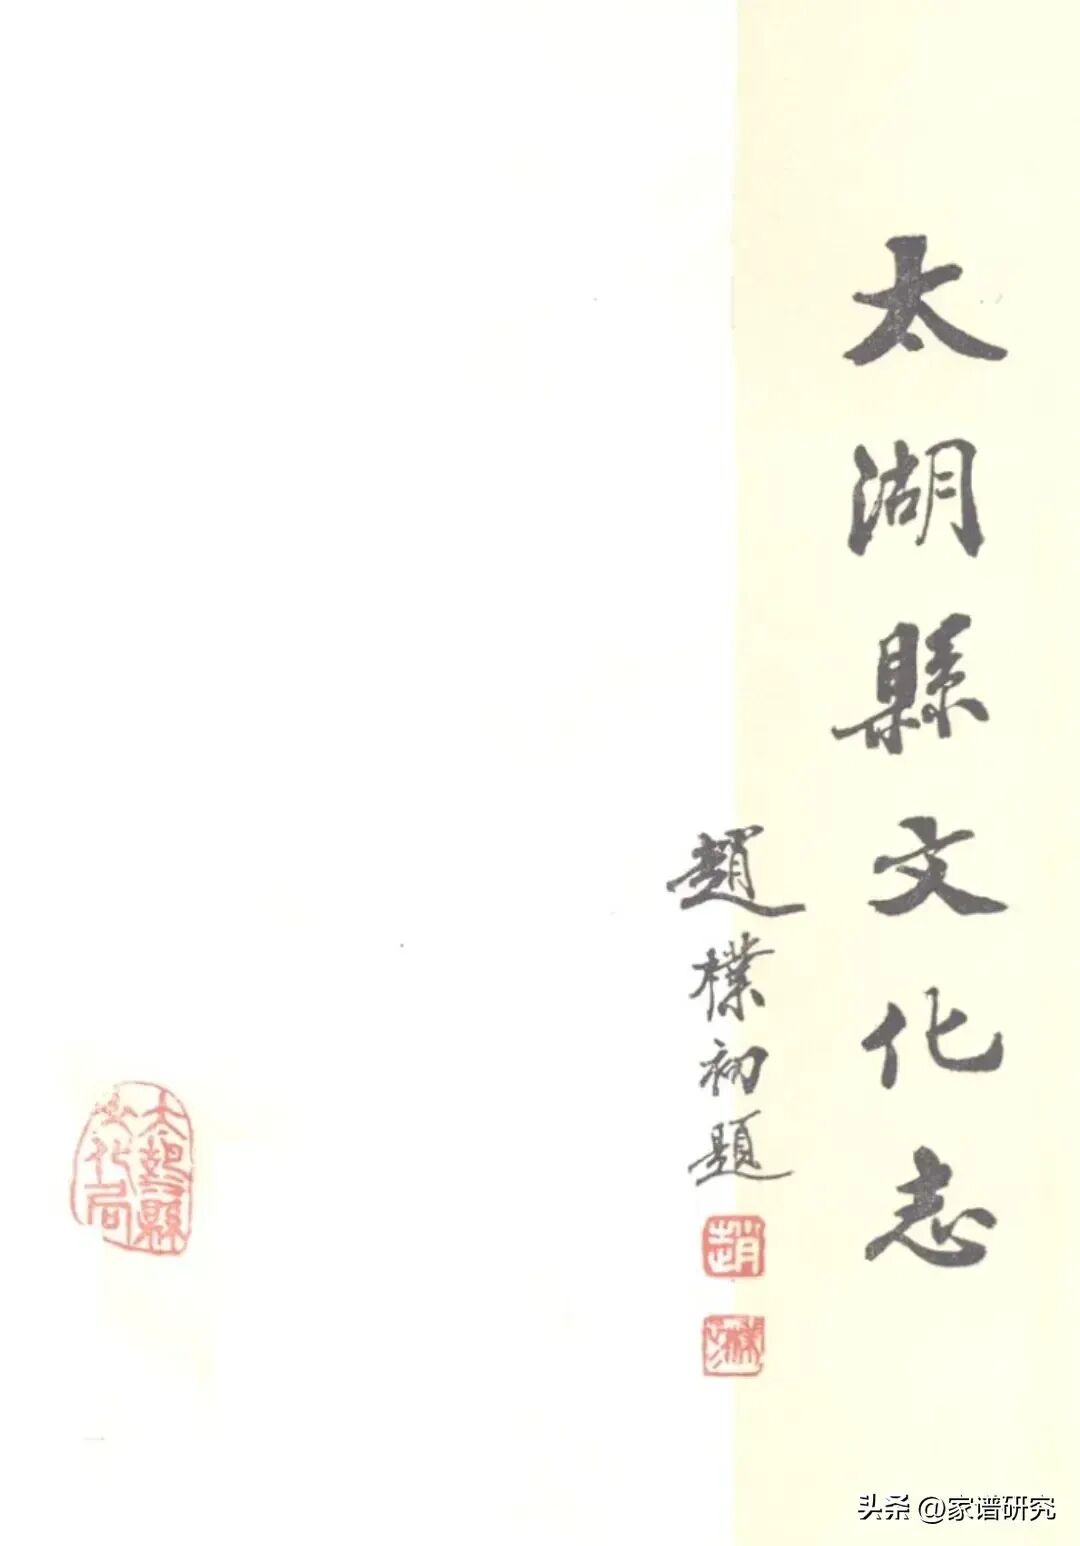 太湖縣文化志
趙樸初題
趙
樸初
文化局
頭条 @家谱研究